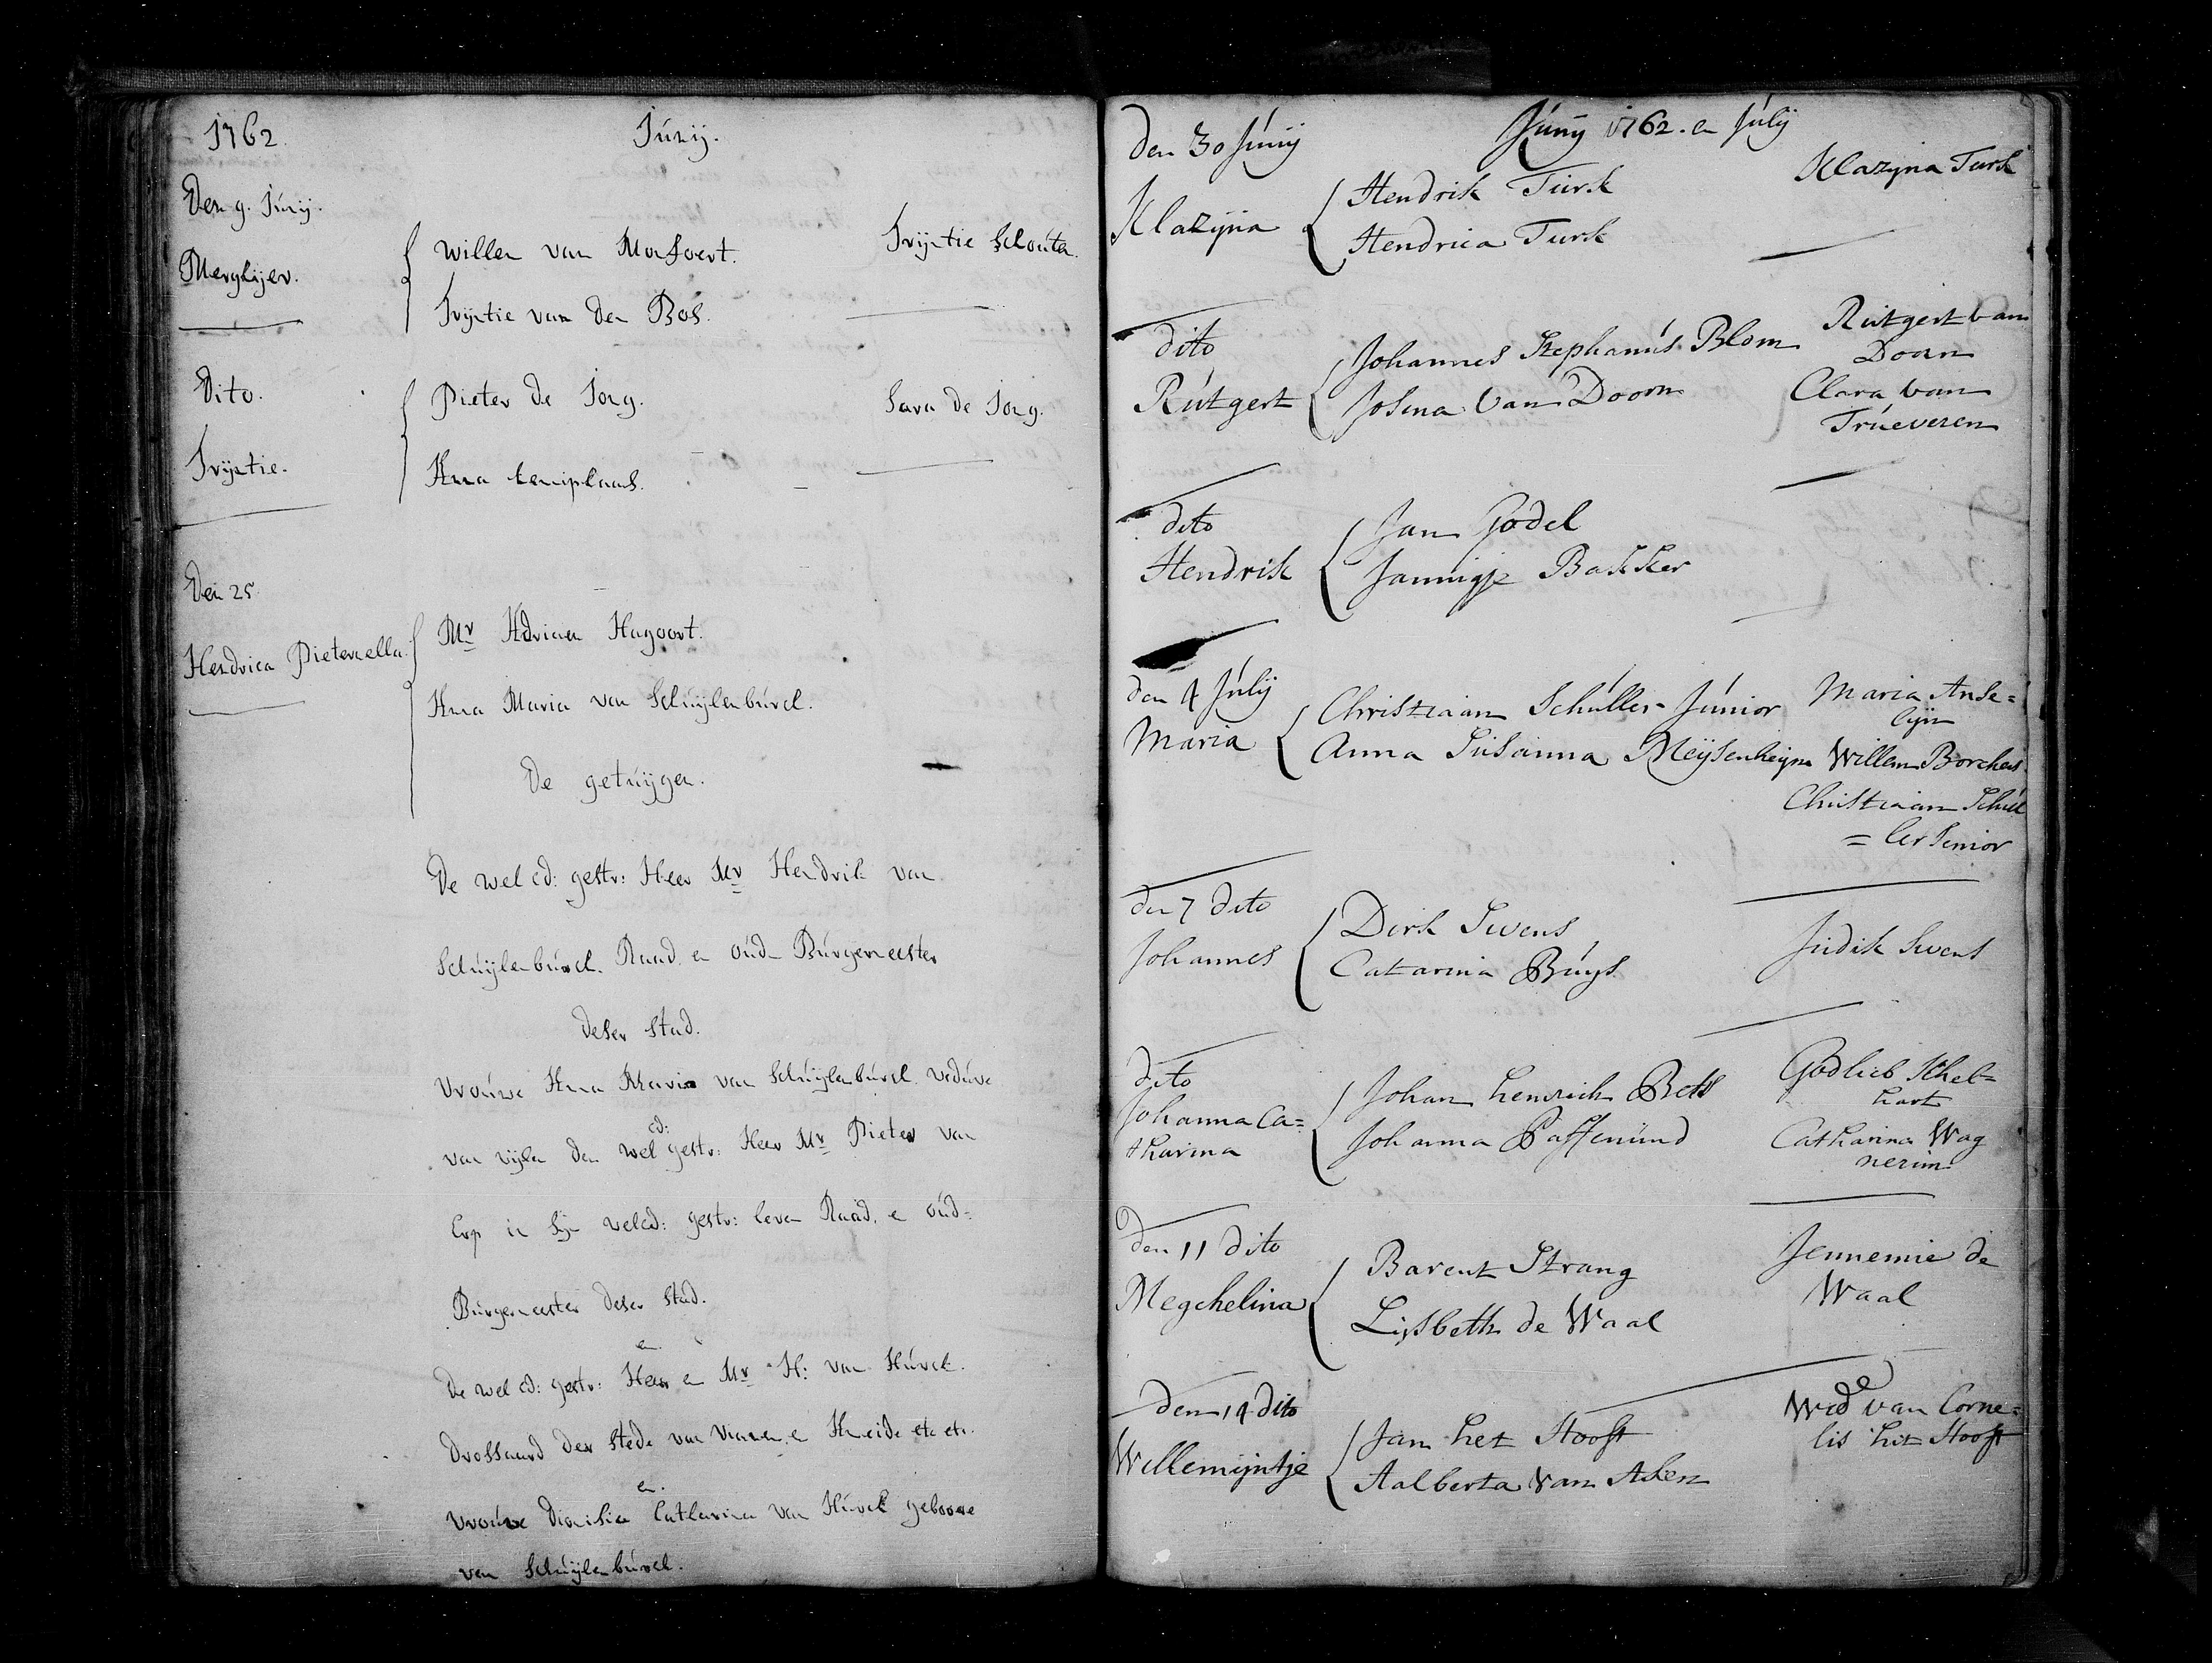 1762.
Junij.
Den 9. Junij.
Willem van Montfoert.
Trijntie Schouten.
Merghijer.
Trijntie van den Bos.
Dito.
Pieter de Jong.
Sara de Jong.
Trijntie.
Anna
Den 25.
Mr Adriaen Hagoort.
Hendrica Pieternella.
Anna Maria van Schuijlenburch.
De getuijgen.
De wel ed: gestr: Heer Mr Hendrik van
Schuijlenburch. Raad en oud Burgemeester
deser stad.
Vrouwe Anna Maria van Schuijlenburch weduwe
van wijlen den wel ed: gestr: Heer Mr Pieter van
Erp in sijn weled: gestr: leven Raad, en oud-
Burgemeester deser stad.
en
De wel ed: gestr: Heer en Mr H: van Hurck.
Drossaard der stede van Vianen en Ameide etc etc.
en.
Vrouwe Dionisia Catharina van Hurck geboore
van Schuijlenburch.
Junij 1762. en Julij
den 30 Junij
Klazijna Turk
Hendrik Turk
Klazijna
Hendrica Turk
dito
Johannes Stephanus Blom
Rutgert van
Doorn
Rutgert
Josina van Doorn
Clara van
Trueveren
dito
Jan Godel
Hendrik
Jannigje Bakker
den 4 Julij
Christiaan Schuller Junior
Maria Anse=
lijn
Maria
Anna Susanna Meijsenheijm
Willem Borchers
Christiaan Schul
= ler Senior
den 7 dito
Dirk Swens
Judik Swens
Johannes
Catarina Buys
dito
Johan Henrich Bets
Godlieb Schel=
hart
Johanna Ca=
tharina
Johanna Paffenund
Catharina Wag
nerin
den 11 dito
Barent Strang
Jennemie de
Waal
Megchelina
Lijsbeth de Waal
den 14 dito
Jan het Hooft
Wede van Corne=
lis het Hooft
Willemijntje
Aalberta van Aken